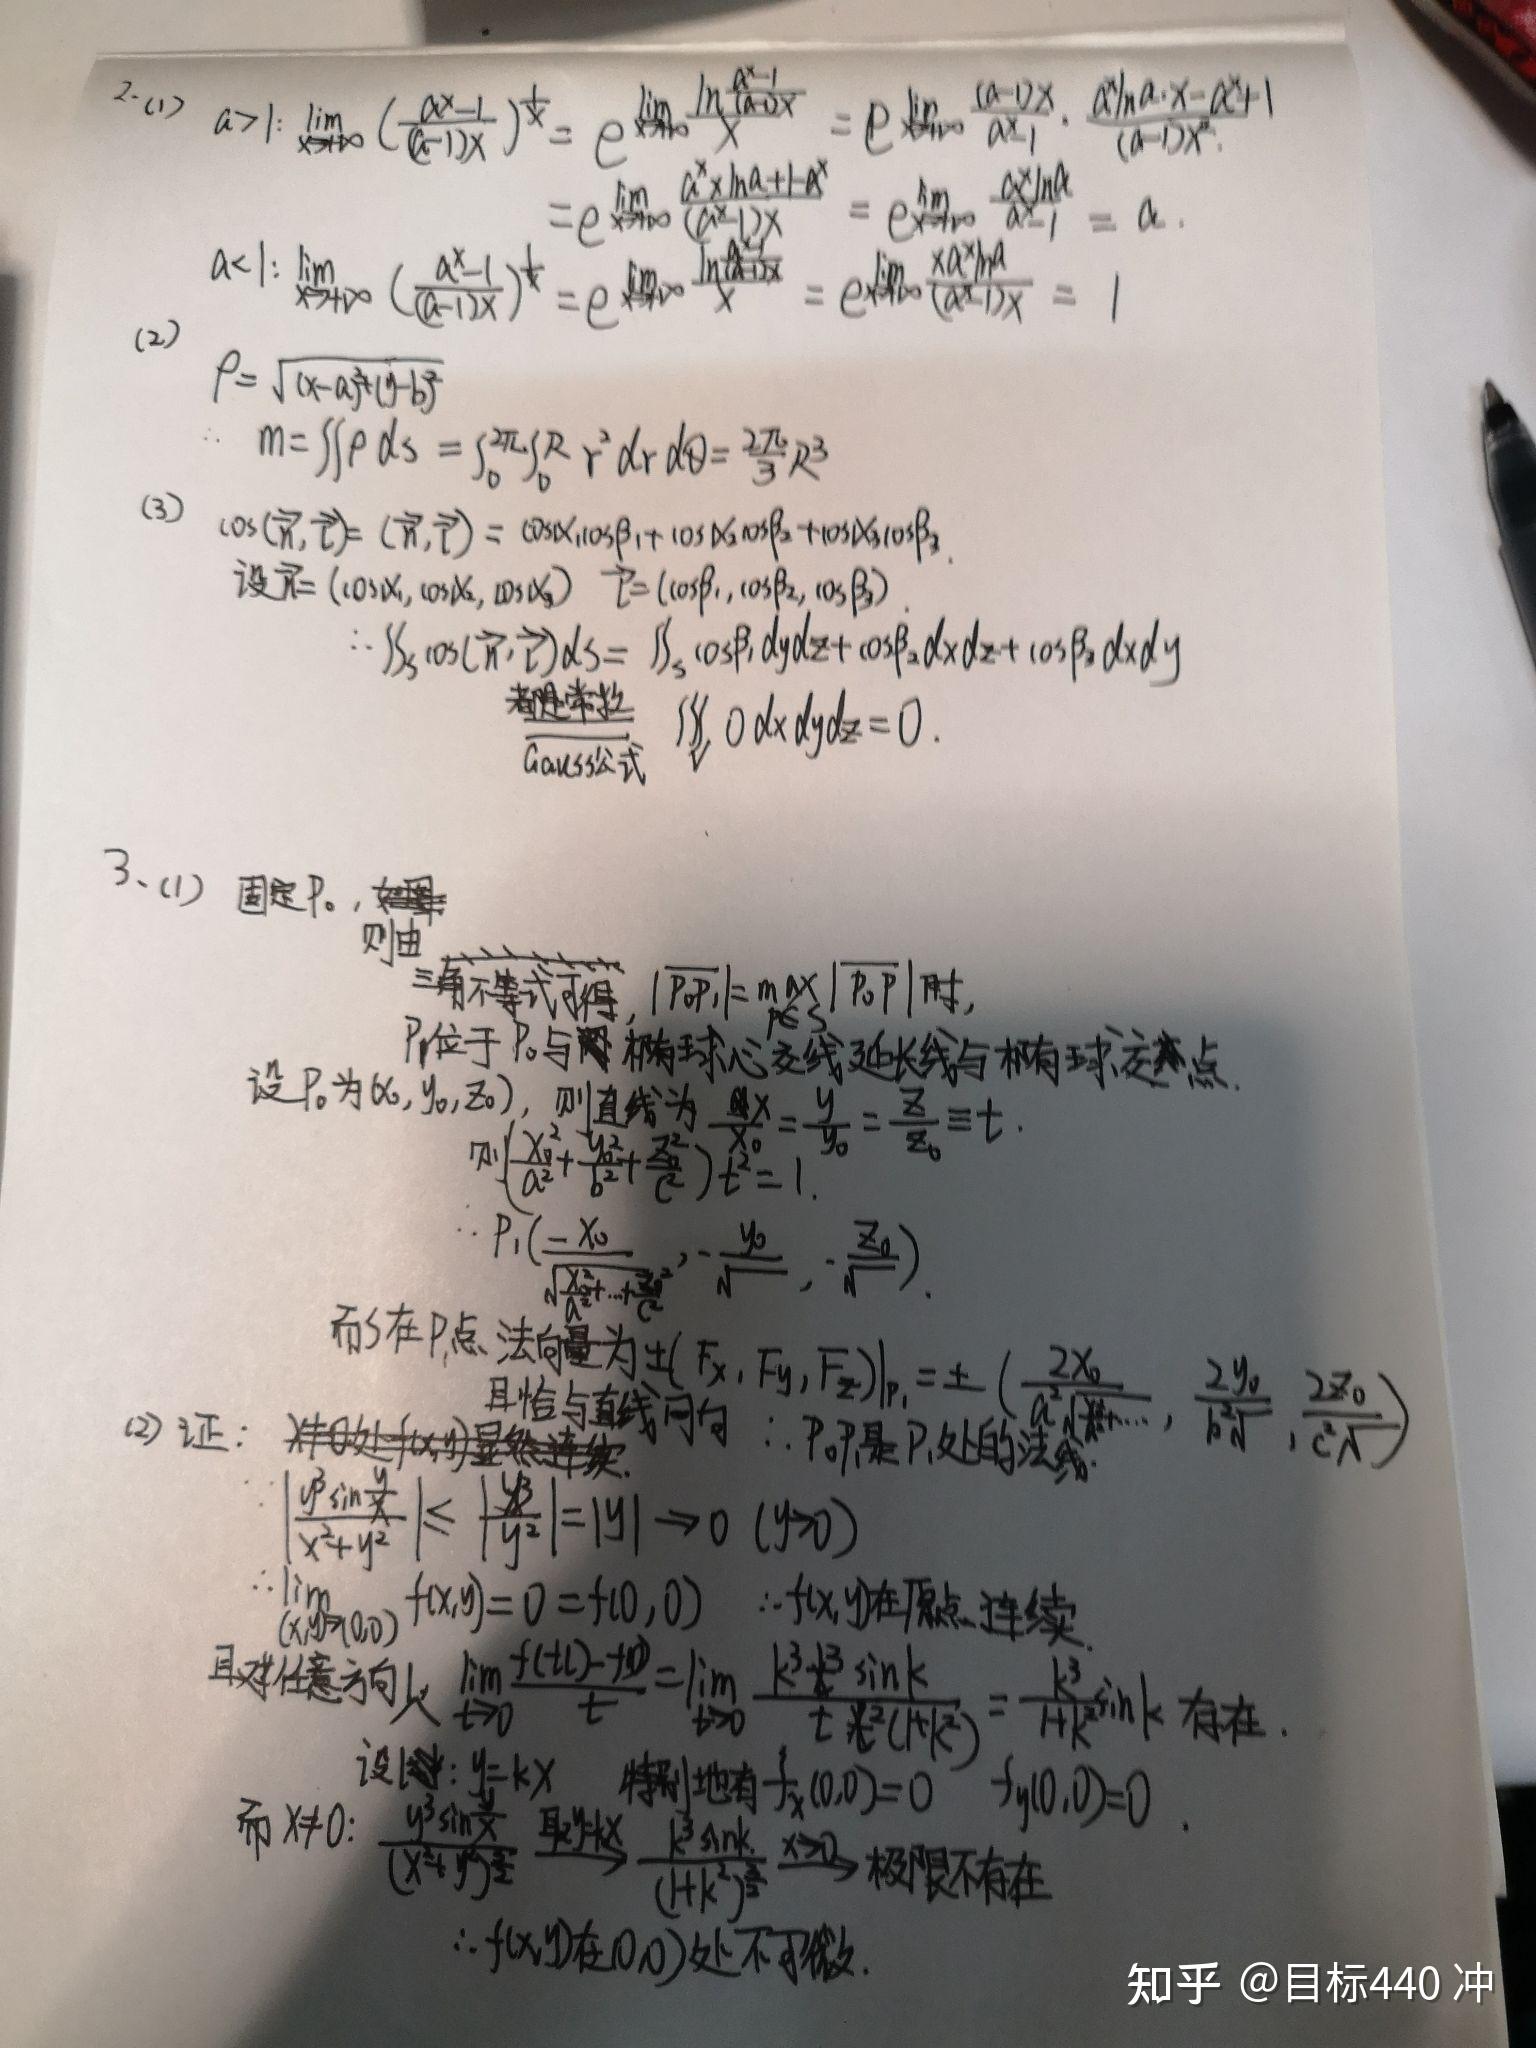 2.(1) a>1: lim x→+∞ ((a^x-1)/((a-1)x))^(1/x) = e^(lim x→+∞ ln((a^x-1)/((a-1)x))/x) = e^(lim x→+∞ (a-1)x/(a^x-1) · (a^x lna·x-a^x+1)/((a-1)x²))
= e^(lim x→+∞ (a^x x lna+1-a^x)/((a^x-1)x)) = e^(lim x→+∞ a^x lna/(a^x-1)) = a.
a<1: lim x→+∞ ((a^x-1)/((a-1)x))^(1/x) = e^(lim x→+∞ ln((a^x-1)/((a-1)x))/x) = e^(lim x→+∞ x a^x lna/((a^x-1)x)) = 1
(2)
ρ=√((x-a)²+(y-b)²)
∴ m=∬ρds = ∫₀^2π ∫₀^R r² dr dθ = 2π/3 R³
(3) cos(n⃗,τ⃗)=(n⃗,τ⃗)=cosα₁cosβ₁+cosα₂cosβ₂+cosα₃cosβ₃.
设n⃗=(cosα₁,cosα₂,cosα₃) τ⃗=(cosβ₁,cosβ₂,cosβ₃).
∴∬_S cos(n⃗,τ⃗)ds=∬_S cosβ₁dydz+cosβ₂dxdz+cosβ₃dxdy
都是常数
Gauss公式 ∭_V 0dxdydz=0.
3.(1) 固定P₀,
则由
三角不等式可得, |P₀P₁|=max P∈S |P₀P|时,
P₁位于P₀与椭球心交线延长线与椭球交点.
设P₀为(x₀,y₀,z₀), 则直线为 x/x₀=y/y₀=z/z₀≡t.
则(x₀²/a²+y₀²/b²+z₀²/c²)t²=1.
∴P₁(-x₀/√(x₀²/a²+…+z₀²/c²), -y₀/√, -z₀/√).
而S在P₁点法向量为±(Fx,Fy,Fz)|P₁=±(2x₀/(a²√x₀²/a²+…), 2y₀/(b²√), 2z₀/(c²√))
且恰与直线同向 ∴P₀P₁是P₁处的法线.
(2) 证: x≠0处f(x,y)显然连续.
∵|y³sin(y/x)/(x²+y²)|≤|y³/y²|=|y|→0 (y→0)
∴lim (x,y)→(0,0) f(x,y)=0=f(0,0) ∴f(x,y)在原点连续.
且对任意方向l, lim t→0 (f(tl)-f(0))/t=lim t→0 k³t³sink/(t·t²(1+k²))=k³/(1+k²) sink 存在.
设l: y=kx 特别地有fx(0,0)=0 fy(0,0)=0.
而x≠0: y³sin(y/x)/(x²+y²)^(3/2) 取y=kx→ k³sink/(1+k²)^(3/2) x→0→ 极限不存在
∴f(x,y)在(0,0)处不可微.
知乎 @目标440 冲